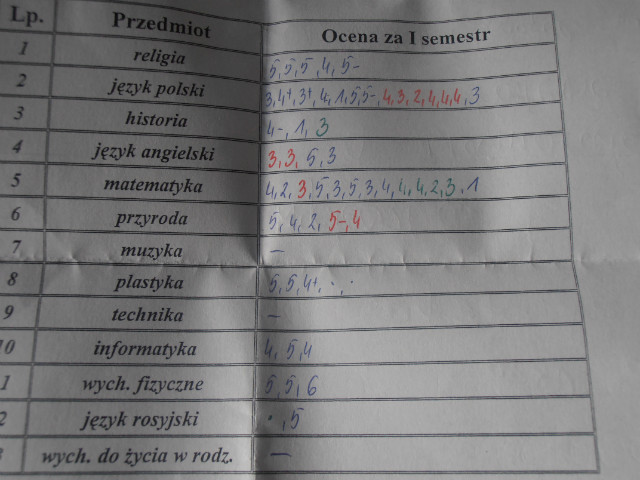 Lp. Przedmiot Ocena za I semestr
1 religia 5,5,5,4,5-
2 język polski 3,4+,3+,4,1,5,5-,4,3,2,4,4,4,3
3 historia 4-,1,3
4 język angielski 3,3,5,3
5 matematyka 4,2,3,5,3,5,3,4,4,4,2,3,1
6 przyroda 5,4,2,5-,4
7 muzyka —
8 plastyka 5,5,4+,·,·
9 technika —
10 informatyka 4,5,4
1 wych. fizyczne 5,5,6
2 język rosyjski ·,5
3 wych. do życia w rodz. —